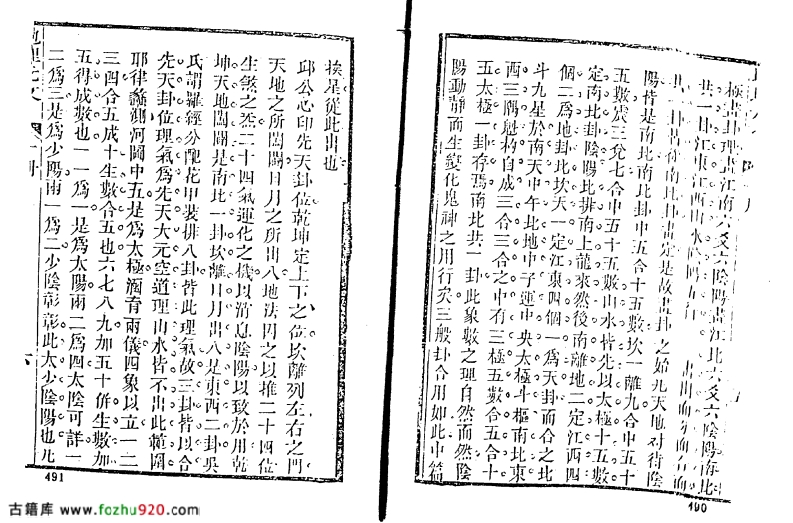 極畫卦理畫江南六爻六陰陽畫江北六爻六陰陽南北
共一卦江東江西山水
共一卦
陽皆是南北南北卦中五合十五數坎一離九合中五十
五數震三兌七合中五十五數山水皆先以太極十五數
定南北卦陰陽比排南上龍來然後南離地二定江西四
個二爲地卦北坎天一定江東四個一爲天卦而合之北
斗九星於南天中午北地中子運中央太極斗樞南北東
西三隅魁杓自成三合三合之中有三極五數合五合十
五太極一卦存焉南北共一卦此象數之理自然而然陰
陽動靜而生變化鬼神之用行矣三般卦合用如此中篇
490
挨星從此出也
邱公心印先天卦位乾坤定上下之位坎離列左右之門
天地之所闔闢日月之所出八地法因之以堆二十四位
生煞之炁二十四氣運化之機以消息陰陽以致於用乾
坤天地闔闢是南北一卦坎離日月出八是東西二卦吳
氏謂羅經分配花甲裝排八卦皆此理氣故三卦皆以合
先天卦位理氣爲先天大元空道理山水皆不出此範圍
耶律蘇測河圖中五是爲太極涵育兩儀四象以立一二
三四合五成十生數合五也六七八九加五十併生數加
五得成數也一一爲一是爲太陽兩二爲四太陰可詳一
二爲三是爲少陽兩一爲二少陰彰彰此太少陰陽也凡
491
古籍库 www.fozhu920.com